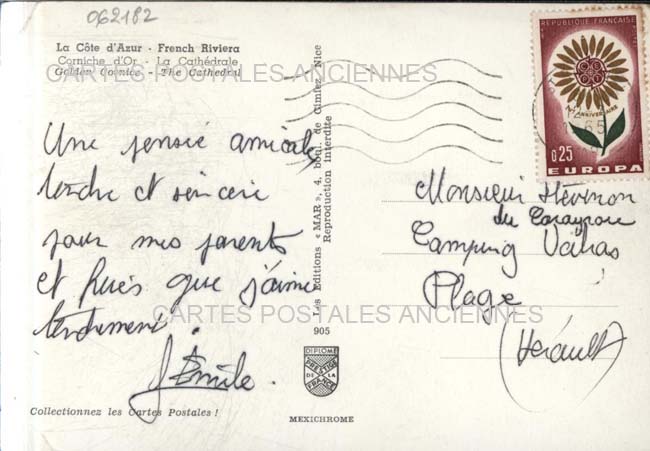 062182
La Côte d'Azur - French Riviera
Corniche d'Or - La Cathédrale
Golden Cornice - The Cathedral
CARTES POSTALES ANCIENNES
Une pensée amicale
tendre et sincère
pour mes parents
et que j'aime
tendrement.
Émile.
Collectionnez les Cartes Postales !
Les Editions « MAR », 4, boul. de Cimiez, Nice
Reproduction interdite
905
DIPLOME
PRESTIGE
DE LA
FRANCE
MEXICHROME
REPUBLIQUE FRANÇAISE
ANNIVERSAIRE
0,25
EUROPA
65
Monsieur
du
Camping Vaïras
Plage
(Hérault)
CARTES POSTALES ANCIENNES